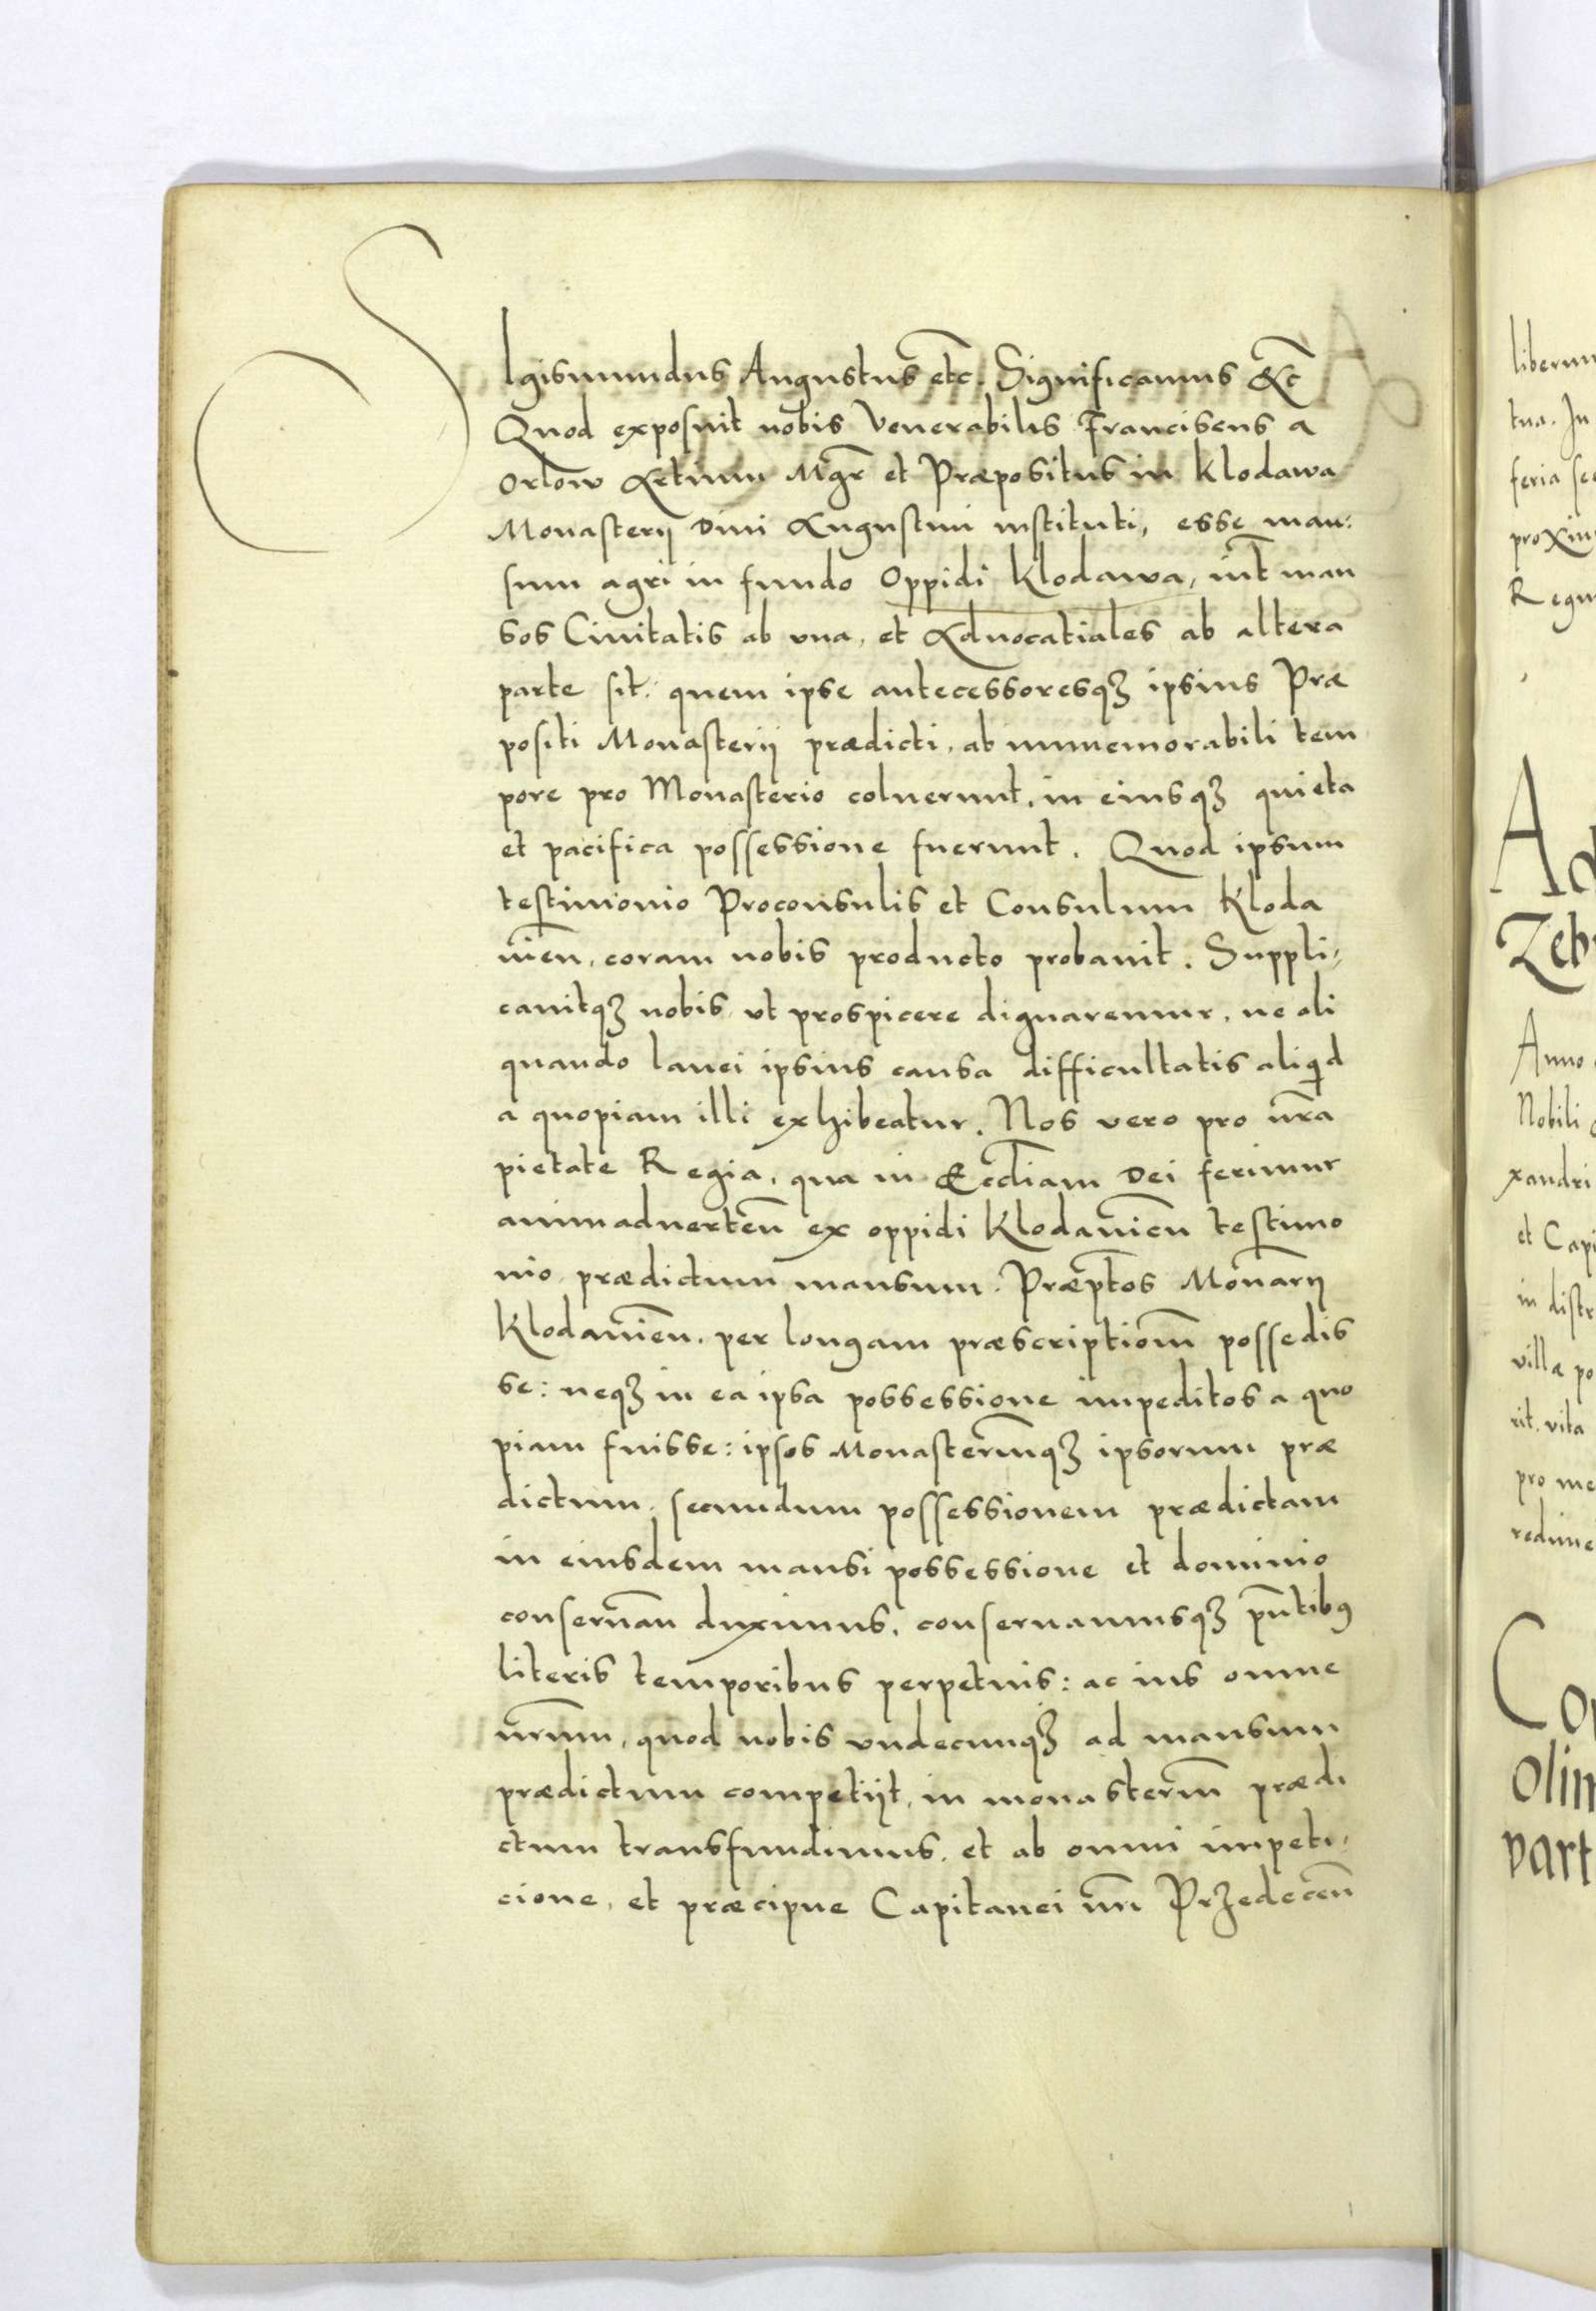 SIgismundus Augustus etc. Significamus &c̄
Quod exposuit nobis Venerabilis Franciscus a
Orlow Artium Mgr̄ et Præpositus in Klodawa
Monasterij Diui Augustini instituti, esse man:
sum agri in fundo Oppidi Klodawa, int̄ man
sos Ciuitatis ab vna, et Aduocatiales ab altera
parte sit: quem ipse antecessoresqꝫ ipsius Præ
positi Monasterij prædicti, ab immemorabili tem
pore pro Monasterio coluerunt, in eiusqꝫ quieta
et pacifica possessione fuerunt. Quod ipsum
testimonio Proconsulis et Consulum Kloda
uien̄, coram nobis producto probauit. Suppli,
cauitqꝫ nobis, vt prospicere dignaremur, ne ali
quando lanei ipsius causa difficultatis aliqid
a quopiam illi exhibeatur. Nos vero pro nr̄a
pietate Regia, qua in Eccl̄iam Dei ferimur
animaduerten̄ ex oppidi Klodauien̄ testimo
nio prædictum mansum. Præpt̄os Monar̄ij
Klodauien̄. per longam præscriptiom̄ possedis
se: neqꝫ in ea ipsa possessione impeditos a quo
piam fuisse: ipsos Monasterm̄qꝫ ipsorum præ
dictum, secundum possessionem prædictam
in eiusdem mansi possessione et dominio
conseruan̄ duximus, conseruamusqꝫ pn̄tibꝰ
literis temporibus perpetuis: ac ius omne
nr̄um, quod nobis vndecunqꝫ ad mansum
prædictum competijt, in monasterm̄ prædi
ctum transfundimus, et ab omni impeti,
cione, et præcipue Capitanei nr̄i Przedecen̄
liberum
tua. In
feria sec
proxim
Regni
Ad
Zeb
Anno
Nobili
xandri
et Capi
in distr
villæ po
rit, vita
pro me
redime
Con
Olim
part